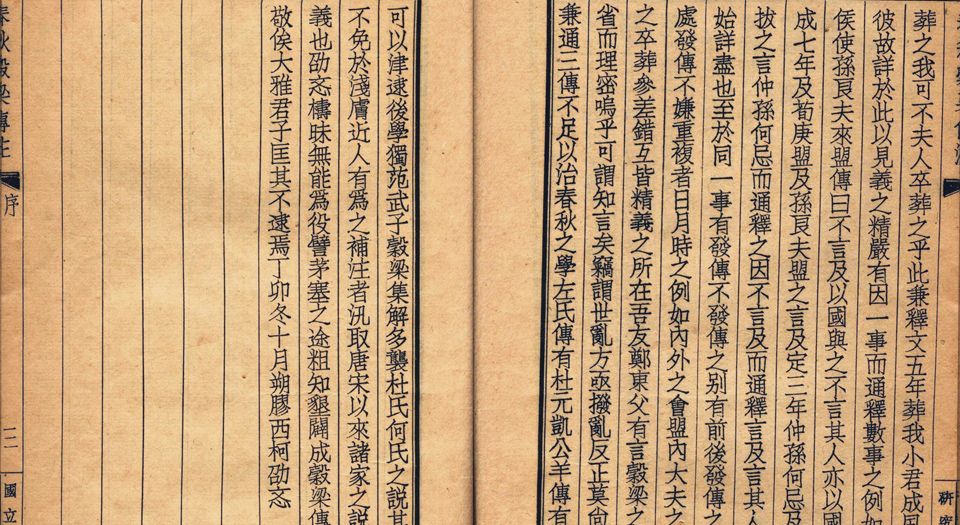 研究
葬之我可不夫人卒葬之乎此兼釋文五年葬我小君成風
彼故詳於此以見義之精嚴有因一事而通釋數事之例如
侯使孫良夫來盟傳曰不言及以國與之不言其人亦以國
成七年及荀庚盟及孫良夫盟之言及定三年仲孫何忌及
拔之言仲孫何忌而通釋之因不言及而通釋言及言其人
始詳盡也至於同一事有發傳不發傳之别有前後發傳
處發傳不嫌重複者日月時之例如內外之會盟內大夫之
之卒葬參差錯互皆精義之所在吾友鄭東父有言穀梁之
省而理密嗚乎可謂知言矣竊謂世亂方亟撥亂反正莫尚
兼通三傳不足以治春秋之學左氏傳有杜元凱公羊傳有
可以津逮後學獨范武子穀梁集解多襲杜氏何氏之説其
不免於淺膚近人有爲之補注者汎取唐宋以來諸家之説
義也劭忞檮昧無能爲役譬茅塞之途粗知墾闢成穀梁傳
敬俟大雅君子匡其不逮焉丁卯冬十月朔膠西柯劭忞
春秋穀梁傳注 序 三 國立